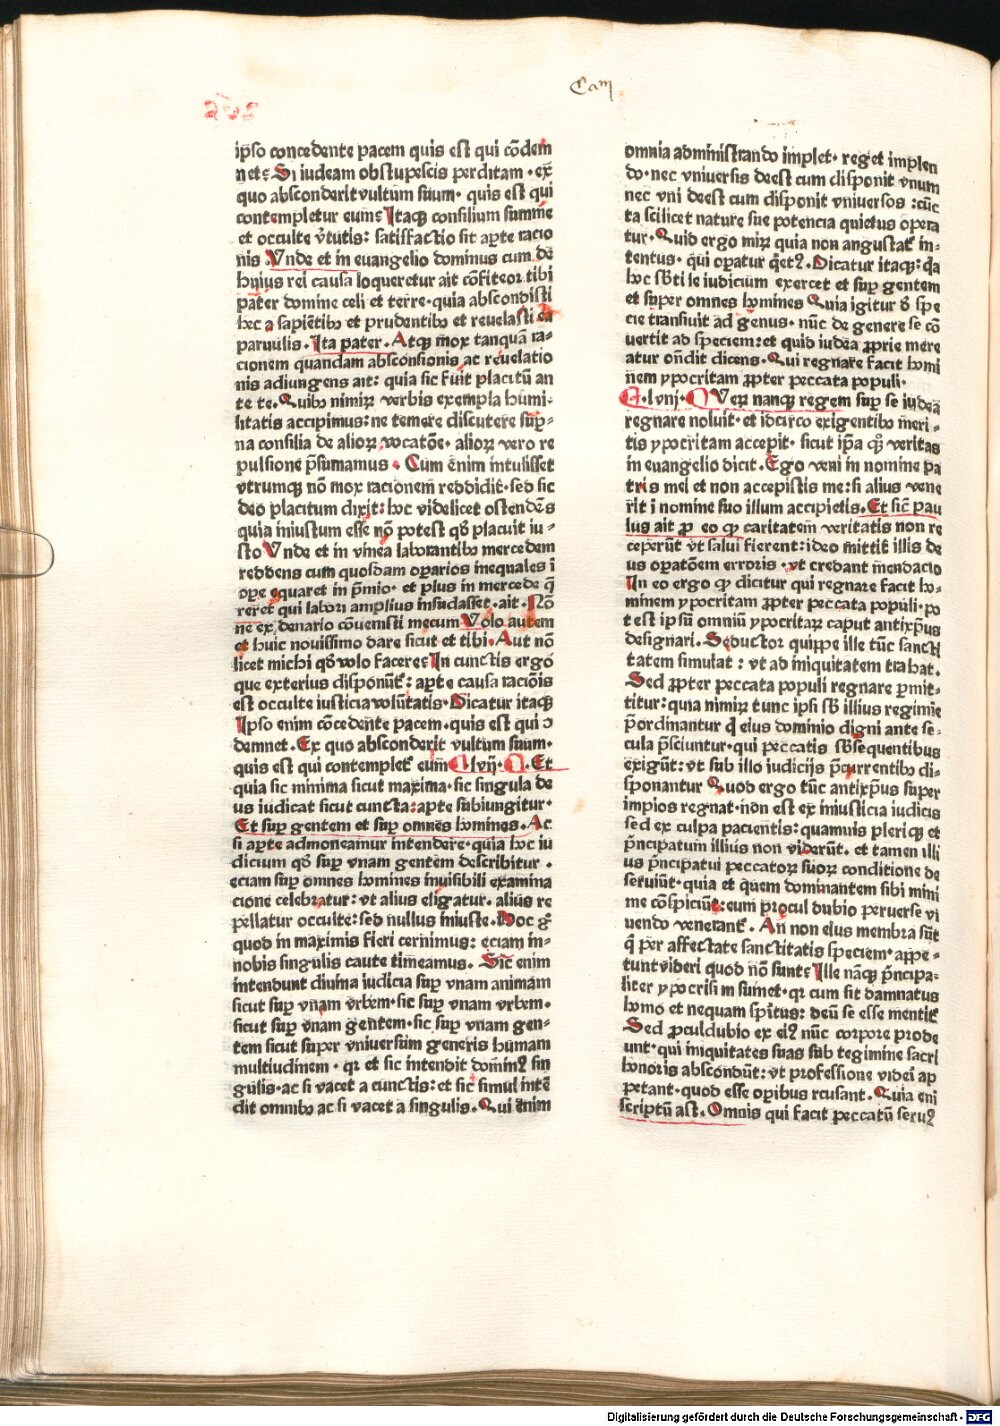 Cam
ipso concedente pacem quis est qui cōdem
net? Si iudeam obstupescis perditam · ex
quo absconderit vultum suum · quis est qui
contempletur eum? Itaqꝫ consilium summe
et occulte ṽtutis: satisfactio sit aꝑte racio
nis . Vnde et in euangelio dominus cum de
huius rei causa loqueretur ait cōfiteor tibi
pater domine celi et terre · quia abscondisti
hec a sapiētibꝰ et prudentibꝰ et reuelasti ea
paruulis . Ita pater . Atqꝫ mox tanquā ra-
cionem quandam absconsionis ac reuelatio
nis adiungens ait: quia sic fuit placitū an
te te . Quibꝰ nimiꝝ verbis exempla humi-
litatis accipimus: ne temere discutere suꝑ-
na consilia de alioꝝ vocatōe · alioꝝ vero re
pulsione p̄sumamus . Cum enim intulisset
vtrumqꝫ nō mox racionem reddidit · sed sic
deo placitum dixit: hoc videlicet ostendēs
quia iniustum esse nō potest qd̄ placuit iu-
sto Vnde et in vinea laborantibꝰ mercedem
reddens cum quosdam oꝑarios inequales ī
oꝑe equaret in p̄mio · et plus in mercede q̄
reret qui labori amplius insudasset · ait . Nō
ne ex denario cōuenisti mecum Volo autem
et huic nouissimo dare sicut et tibi . Aut nō
licet michi qd̄ volo facere? In cunctis ergo
que exterius disponūt᷑: aꝑte causa racōis
est occulte iusticia volūtatis . Dicatur itaqꝫ
Ipso enim cōcedente pacem · quis est qui ↄ̄
demnet . Ex quo absconderit vultum suum ·
quis est qui contemplet᷑ eum C lvij · C . Et
quia sic minima sicut maxima · sic singula de
us iudicat sicut cuncta: aꝑte subiungitur ·
Et suꝑ gentem et suꝑ omnes homines . Ac
si aꝑte admoneamur intendere · quia hoc iu
dicium qd̄ suꝑ vnam gentem describitur .
eciam suꝑ omnes homines inuisibili examina
cione celebratur: vt alius eligatur · alius re
pellatur occulte: sed nullus iniuste . Hoc gͦ
quod in maximis fieri cernimus: eciam in-
nobis singulis caute timeamus . Sic enim
intendunt diuina iudicia suꝑ vnam animam
sicut suꝑ vnam vrbem · sic suꝑ vnam vrbem ·
sicut suꝑ vnam gentem · sic suꝑ vnam gen-
tem sicut super vniuersum generis humani
multiudinem · qr et sic intendit domiꝰ sin
gulis · ac si vacet a cunctis: et sic simul intē
dit omnibꝰ ac si vacet a singulis . Qui enim
omnia administrando implet · reget implen
do · nec vniuersis deest cum disponit vnum
nec vni deest cum disponit vniuersos: cūc
ta scilicet nature sue potencia quietus oꝑa
tur . Quid ergo miꝝ quia non angustat᷑ in-
tentus · qui oꝑatur q̄etꝰ . Dicatur itaqꝫ: q̄a
hoc sb̄tile iudicium exercet et suꝑ gentem
et super omnes homines Quia igitur d̄ spe
cie transiuit ad genus · nūc de genere se cō
uertit ad speciem: et quid iudea ꝓprie mere
atur on̄dit dicens . Qui regnare facit homi
nem ypocritam ꝓpter peccata populi .
C . lviij . C Veꝝ nanqꝫ regem suꝑ se iudea
regnare noluit · et idcirco exigentibꝰ meri-
tis ypocritam accepit · sicut ip̄a qꝫ veritas
in euangelio dicit . Ego veni in nomine pa
tris mei et non accepistis me: si alius vene
rit ī nomine suo illum accipietis . Et sic̄ pau
lus ait ꝓ eo ꝙ caritatem veritatis non re
ceperūt vt salui fierent: ideo mittit illis de
us oꝑatōem erroris · vt credant mendacio
In eo ergo ꝙ dicitur qui regnare facit ho-
minem ypocritam ꝓpter peccata populi · po
test ip̄m omniū ypocritaꝝ caput antixp̄us
designari . Seductor quippe ille tūc sancti
tatem simulat: vt ad iniquitatem trahat .
Sed ꝓpter peccata populi regnare ꝑmit-
titur: quia nimiꝝ tunc ipsi sb̄ illius regimīe
p̄ordinantur q̄ eius dominio digni ante se-
cula p̄sciuntur · qui peccatis sb̄sequentibus
exigūt: vt sub illo iudicijs p̄currentibꝰ di-
sponantur Quod ergo tūc antixp̄us super
impios regnat · non est ex iniusticia iudicis
sed ex culpa pacientis: quamuis pleriqꝫ et
p̄ncipatum illius non viderūt · et tamen illi
us p̄ncipatui peccatoꝝ suoꝝ conditione de
seruiūt · quia et quem dominantem sibi mini
me cōspiciūt: eum procul dubio peruerse vi
uendo venerant᷑ . An non eius membra sūt
q̄ per affectate sanctitatis speciem · appe-
tunt videri quod nō sunt? Ille nāqꝫ p̄ncipa-
liter ypocrisim sumet · qr cum sit damnatus
homo et nequam sp̄itus: deū se esse mentit᷑
Sed ꝓculdubio ex eiꝰ nūc corpore prode
unt · qui iniquitates suas sub tegimine sacri
honoris abscondūt: vt professione videri ap
petant · quod esse oꝑibus rcusant . Quia eni
scriptū ast . Omnis qui facit peccatū seruꝰ
Digitalisierung gefördert durch die Deutsche Forschungsgemeinschaft - DFG